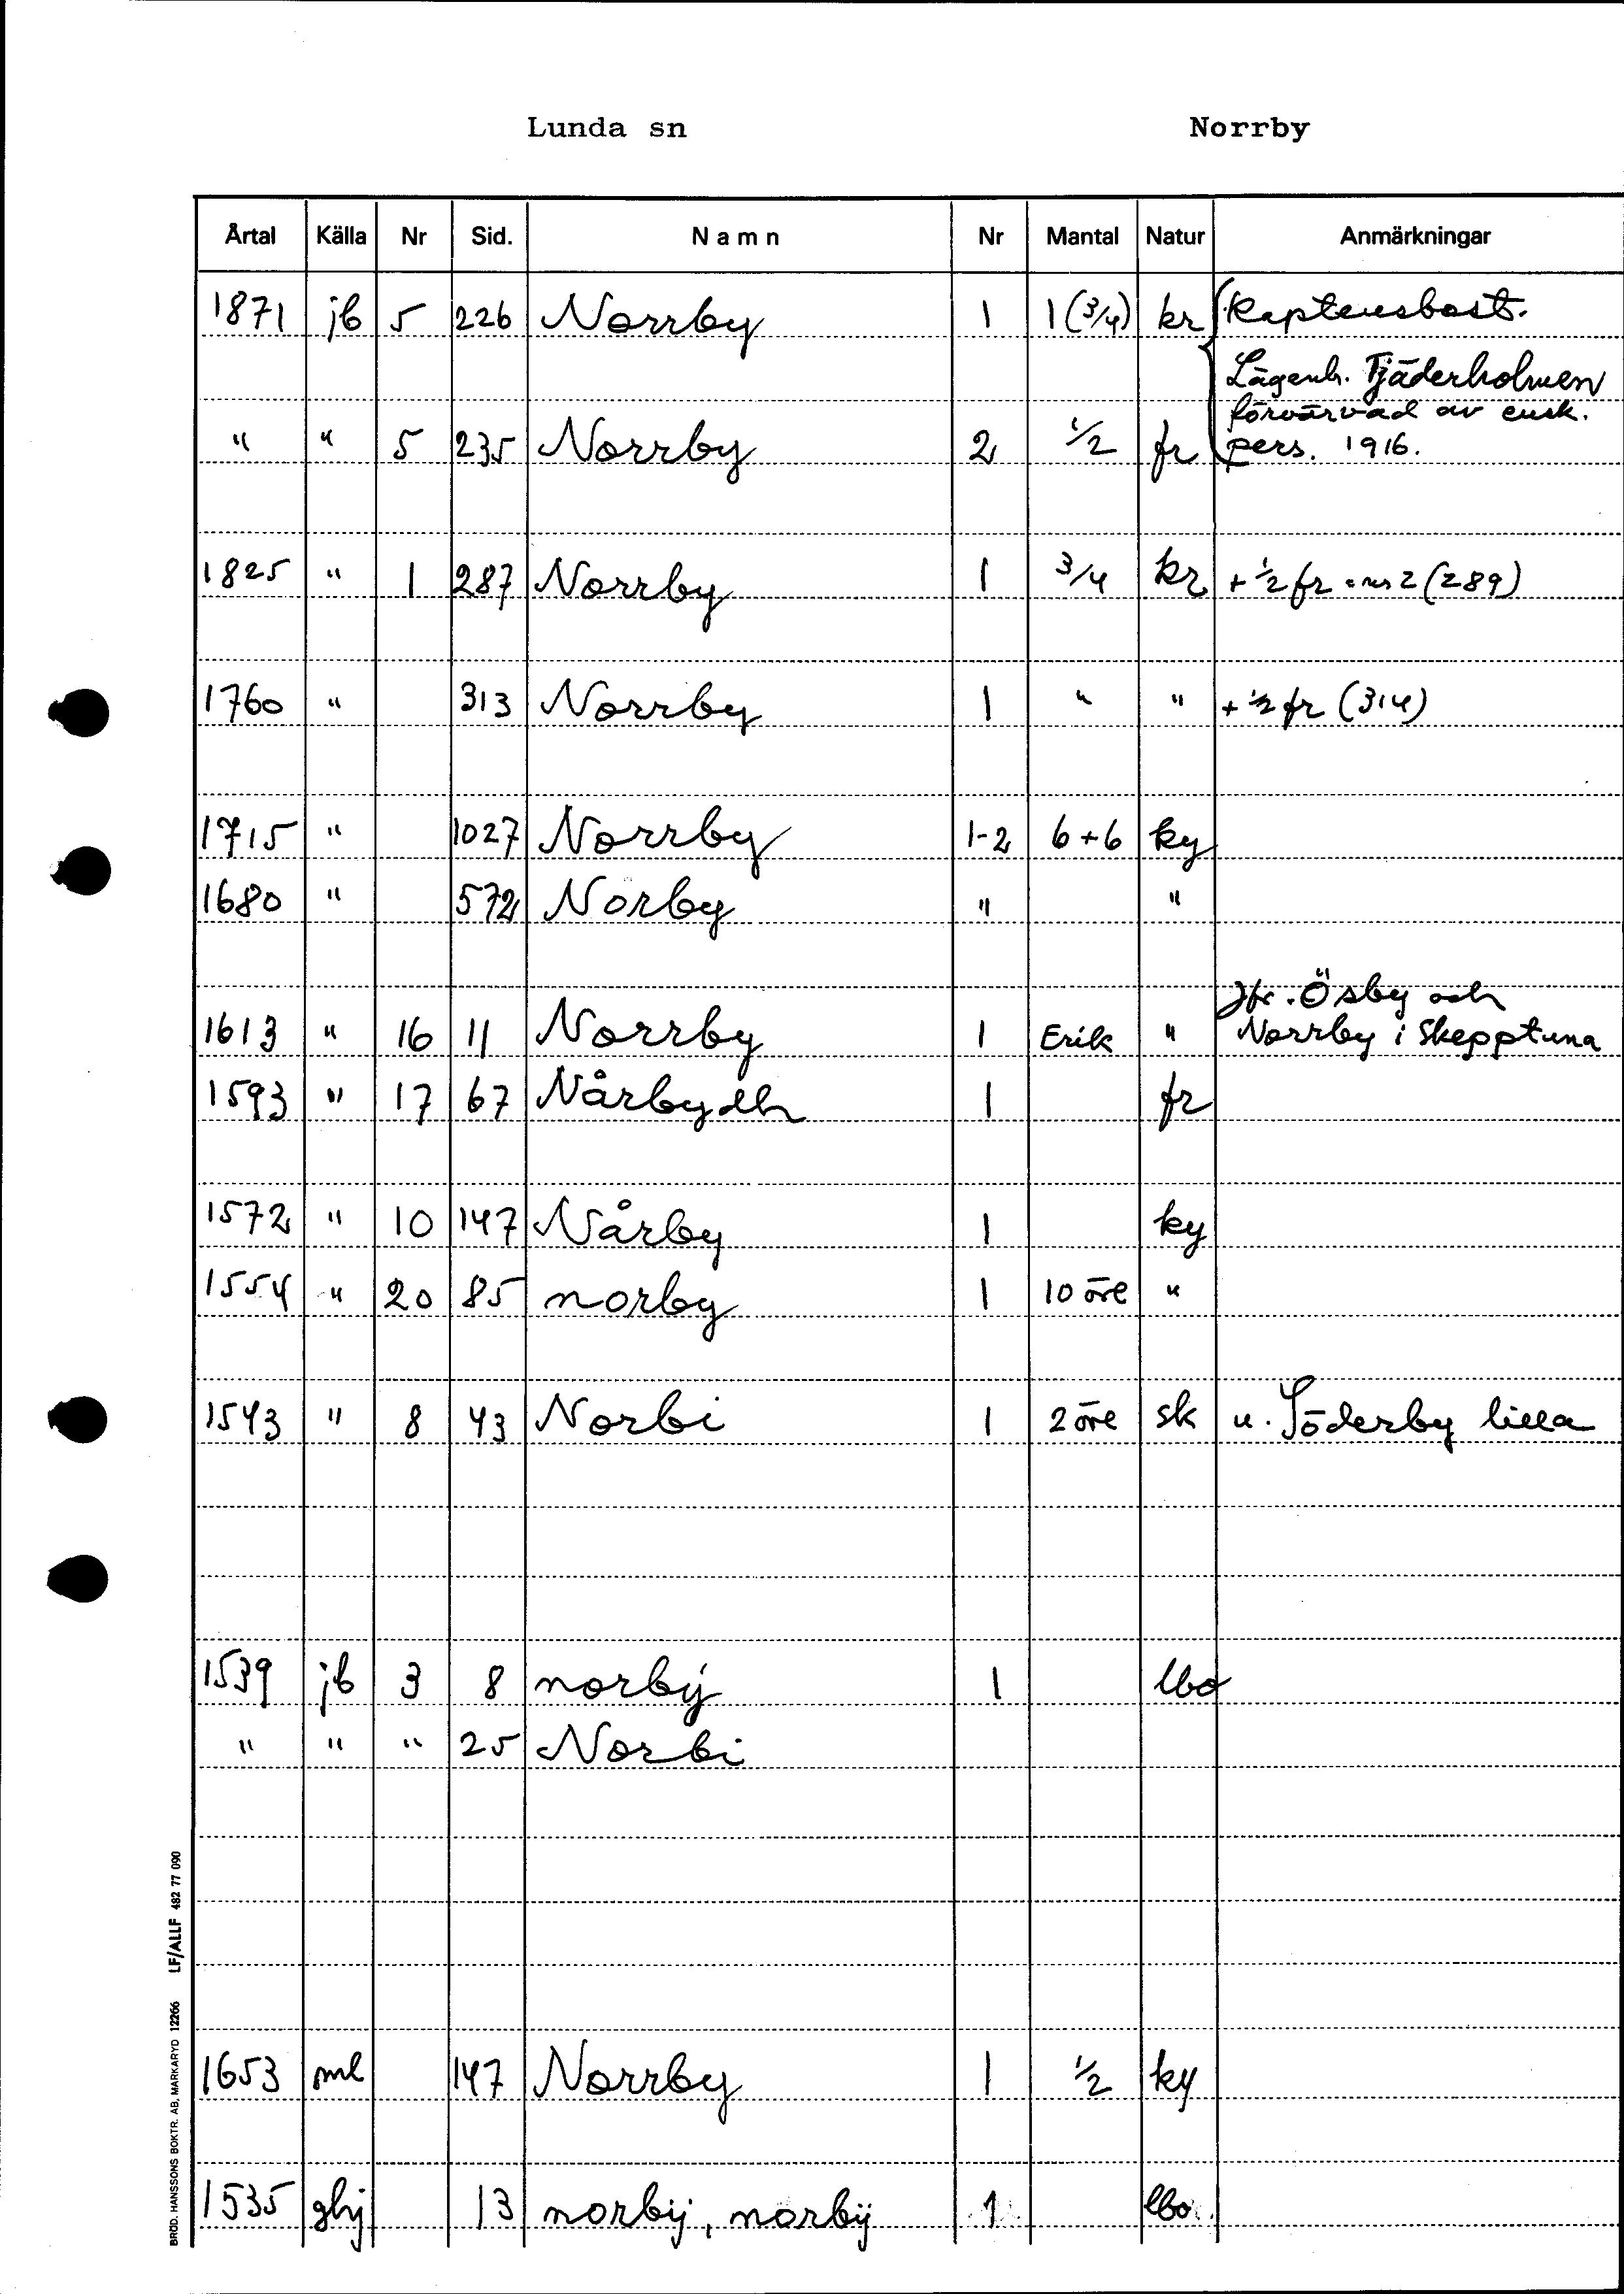 Lunda sn Norrby
Årtal Källa Nr Sid. Namn Nr Mantal Natur Anmärkningar
1871 jb 5 226 Norrby 1 1 (3/4) kr Kaptensbost.
Lägenh. Tjäderholmen
förvärvad av ensk.
" " 5 235 Norrby 2 1/2 fr pers. 1916.
1825 " 1 287 Norrby 1 3/4 kr + 1/2 fr = nr 2 (289)
1760 " 313 Norrby 1 " " + 1/2 fr (314)
1715 " 1027 Norrby 1-2 6+6 ky
1680 " 572 Norby " "
Jfr. Ösby och
1613 " 16 11 Norrby 1 Erik " Norrby i Skepptuna
1593 " 17 67 Nårby dh 1 fr
1572 " 10 147 Nårby 1 ky
1554 " 20 85 norby 1 10 öre "
1543 " 8 43 Norbi 1 2 öre sk u. Söderby lilla
1539 jb 3 8 norbÿ 1 lbo
" " " 25 Norbi
1653 ml 147 Norrby 1 1/2 ky
1535 ghj 13 norbÿ, norbÿ 1 lbo
BRÖD. HANSSONS BOKTR. AB, MARKARYD 12266 LF/ALLF 482 77 090